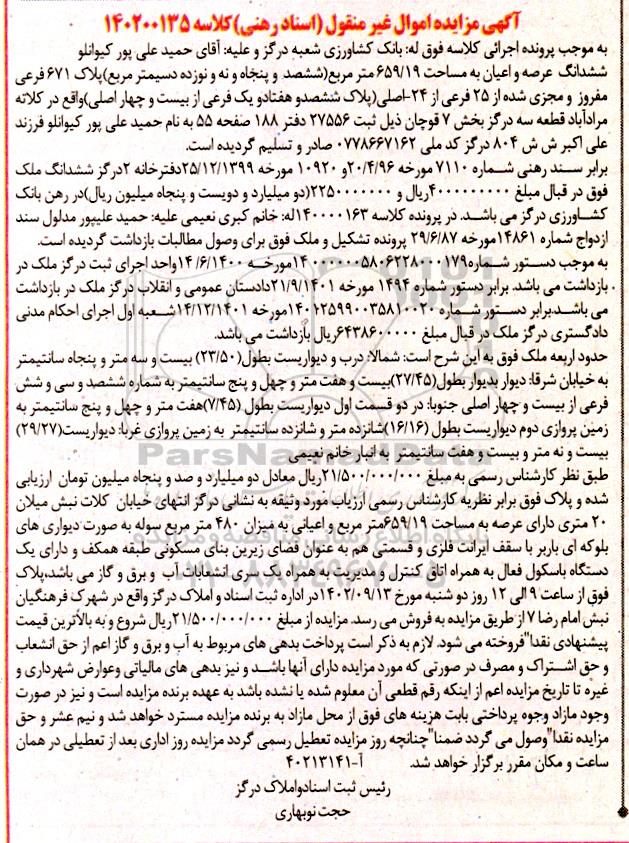 آگهی مزایده اموال غیر منقول (اسناد رهنی) کلاسه ۱۴۰۲۰۰۱۳۵
به موجب پرونده اجرائی کلاسه فوق له: بانک کشاورزی شعبه درگز و علیه: آقای حمید علی پور کیوانلو
ششدانگ عرصه و اعیان به مساحت ۶۵۹/۱۹ متر مربع(ششصد و پنجاه و نه و نوزده دسیمتر مربع)پلاک ۶۷۱ فرعی
مفروز و مجزی شده از ۲۵ فرعی از ۲۴-اصلی(پلاک ششصدو هفتادو یک فرعی از بیست و چهار اصلی)واقع در کلاته
مرادآباد قطعه سه درگز بخش ۷ قوچان ذیل ثبت ۲۷۵۵۶ دفتر ۱۸۸ صفحه ۵۵ به نام حمید علی پور کیوانلو فرزند
علی اکبر ش ش ۸۰۴ درگز کد ملی ۰۷۷۸۶۶۷۱۶۲ صادر و تسلیم گردیده است.
برابر سند رهنی شماره ۷۱۱۰ مورخه ۲۰/۴/۹۶و ۱۰۹۲۰ مورخه ۲۵/۱۲/۱۳۹۹دفترخانه ۲درگز ششدانگ ملک
فوق در قبال مبلغ ۴۰۰۰۰۰۰۰۰۰ریال و ۲۲۵۰۰۰۰۰۰۰(دو میلیارد و دویست و پنجاه میلیون ریال)در رهن بانک
کشاورزی درگز می باشد. در پرونده کلاسه ۱۴۰۰۰۰۱۶۳له: خانم کبری نعیمی علیه: حمید علیپور مدلول سند
ازدواج شماره ۱۴۸۶۱مورخه ۲۹/۶/۸۷ پرونده تشکیل و ملک فوق برای وصول مطالبات بازداشت گردیده است.
به موجب دستور شماره۱۴۰۰۰۰۰۰۵۸۰۶۲۲۸۰۰۰۱۷۹مورخه ۱۴/۶/۱۴۰۰واحد اجرای ثبت درگز ملک در
بازداشت می باشد. برابر دستور شماره ۱۴۹۴ مورخه ۲۱/۹/۱۴۰۱دادستان عمومی و انقلاب درگز ملک در بازداشت
می باشد.برابر دستور شماره ۱۴۰۱۲۵۹۹۰۰۳۵۸۱۰۰۲۰مورخه ۱۴/۱۲/۱۴۰۱شعبه اول اجرای احکام مدنی
دادگستری درگز ملک در قبال مبلغ ۶۴۳۸۶۰۰۰۰۰ریال بازداشت می باشد.
حدود اربعه ملک فوق به این شرح است: شمالا: درب و دیواریست بطول(۲۳/۵۰) بیست و سه متر و پنجاه سانتیمتر
به خیابان شرقا: دیوار بدیوار بطول(۲۷/۴۵)بیست و هفت متر و چهل و پنج سانتیمتر به شماره ششصد و سی و شش
فرعی از بیست و چهار اصلی جنوبا: در دو قسمت اول دیواریست بطول (۷/۴۵)هفت متر و چهل و پنج سانتیمتر به
زمین پروازی دوم دیواریست بطول (۱۶/۱۶)شانزده متر و شانزده سانتیمتر به زمین پروازی غربا: دیواریست(۲۹/۲۷)
بیست و نه متر و بیست و هفت سانتیمتر به انبار خانم نعیمی
طبق نظر کارشناس رسمی به مبلغ ۲۱/۵۰۰/۰۰۰/۰۰۰ریال معادل دو میلیارد و صد و پنجاه میلیون تومان ارزیابی
شده و پلاک فوق برابر نظریه کارشناس رسمی ارزیاب مورد وثیقه به نشانی درگز انتهای خیابان کلات نبش میلان
۲۰ متری دارای عرصه به مساحت ۶۵۹/۱۹متر مربع و اعیانی به میزان ۴۸۰ متر مربع سوله به صورت دیواری های
بلوکه ای باربر با سقف ایرانت فلزی و قسمتی هم به عنوان فضای زیرین بنای مسکونی طبقه همکف و دارای یک
دستگاه باسکول فعال به همراه اتاق کنترل و مدیریت به همراه یک سری انشعابات آب و برق و گاز می باشد،پلاک
فوق از ساعت ۹ الی ۱۲ روز دو شنبه مورخ ۱۴۰۲/۰۹/۱۳در اداره ثبت اسناد و املاک درگز واقع در شهرک فرهنگیان
نبش امام رضا ۷ از طریق مزایده به فروش می رسد. مزایده از مبلغ ۲۱/۵۰۰/۰۰۰/۰۰۰ریال شروع و به بالاترین قیمت
پیشنهادی نقدا"فروخته می شود. لازم به ذکر است پرداخت بدهی های مربوط به آب و برق و گاز اعم از حق انشعاب
و حق اشتراک و مصرف در صورتی که مورد مزایده دارای آنها باشد و نیز بدهی های مالیاتی وعوارض شهرداری و
غیره تا تاریخ مزایده اعم از اینکه رقم قطعی آن معلوم شده یا نشده باشد به عهده برنده مزایده است و نیز در صورت
وجود مازاد وجوه پرداختی بابت هزینه های فوق از محل مازاد به برنده مزایده مسترد خواهد شد و نیم عشر و حق
مزایده نقدا"وصول می گردد ضمنا"چنانچه روز مزایده تعطیل رسمی گردد مزایده روز اداری بعد از تعطیلی در همان
ساعت و مکان مقرر برگزار خواهد شد. آ-۴۰۲۱۳۱۴۱
رئیس ثبت اسنادواملاک درگز
حجت نوبهاری
ParsNamadData